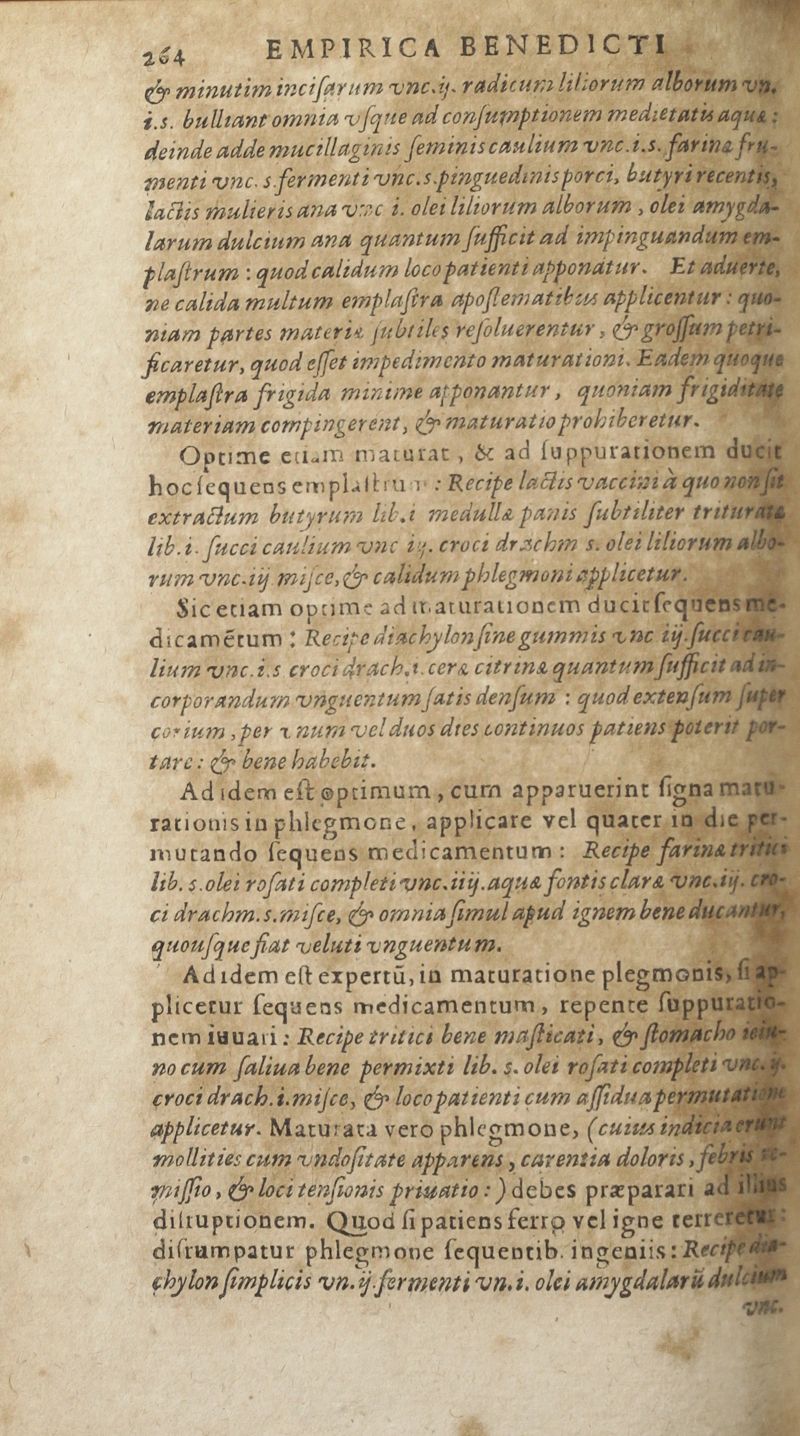 264 EMPIRICA BENEDICTI
& minutim inciſarum vnc.ij. radicum liliorum alborum vn.
i.s. bulliant omnia vſque ad conſumptionem medietatis aquæ :
deinde adde mucillaginis ſeminis caulium vnc.i.s. farinæ fru-
menti vnc. s fermenti vnc.s.pinguedinis porci, butyri recentis,
lactis mulieris ana vnc i. olei liliorum alborum , olei amygda-
larum dulcium ana quantum ſufficit ad impinguandum em-
plaſtrum : quod calidum loco patienti apponatur. Et aduerte,
ne calida multum emplaſtra apoſtematibus applicentur : quo-
niam partes materiæ ſubtiles reſoluerentur, & groſſum petri-
ficaretur, quod eſſet impedimento maturationi. Eadem quoque
emplaſtra frigida minime apponantur, quoniam frigiditate
materiam compingerent, & maturatio prohiberetur.
Optime etiam maturat, & ad ſuppurationem ducit
hoc ſequens emplaſtrum : Recipe lactis vaccini à quo non ſit
extractum butyrum lib.i medullæ panis ſubtiliter trituratæ
lib.i. ſucci caulium vnc ij. croci drachm s. olei liliorum albo-
rum vnc.iij miſce, & calidum phlegmoni applicetur.
Sic etiam optime ad maturationem ducit ſequens me-
dicamētum : Recipe diachylon ſine gummis vnc iij. ſucci cau-
lium vnc.i.s croci drach.i. ceræ citrinæ quantum ſufficit ad in-
corporandum vnguentum ſatis denſum : quod extenſum ſuper
corium , per vnum vel duos dies continuos patiens poterit por-
tare : & bene habebit.
Ad idem eſt optimum , cum apparuerint ſigna matu-
rationis in phlegmone, applicare vel quater in die per-
mutando ſequens medicamentum : Recipe farinæ tritici
lib. s. olei roſati completi vnc.iiij. aquæ fontis claræ vnc.iij. cro-
ci drachm.s. miſce, & omnia ſimul apud ignem bene ducantur,
quouſque fiat veluti vnguentum.
Ad idem eſt expertū, in maturatione plegmonis, ſi ap-
plicetur ſequens medicamentum, repente ſuppuratio-
nem iuuari : Recipe tritici bene maſticati, & ſtomacho ieiu-
no cum ſaliua bene permixti lib. s. olei roſati completi vnc. ij.
croci drach.i. miſce, & loco patienti cum aſſidua permutatione
applicetur. Maturata vero phlegmone, (cuius indicia erunt
mollities cum vndoſitate apparens , carentia doloris , febris re-
miſſio , & loci tenſionis priuatio : ) debes præparari ad illius
diſruptionem. Quod ſi patiens ferro vel igne terreretur :
diſrumpatur phlegmone ſequentib. ingeniis : Recipe dia-
chylon ſimplicis vn. ij. fermenti vn.i. olei amygdalarū dulcium
vnc.